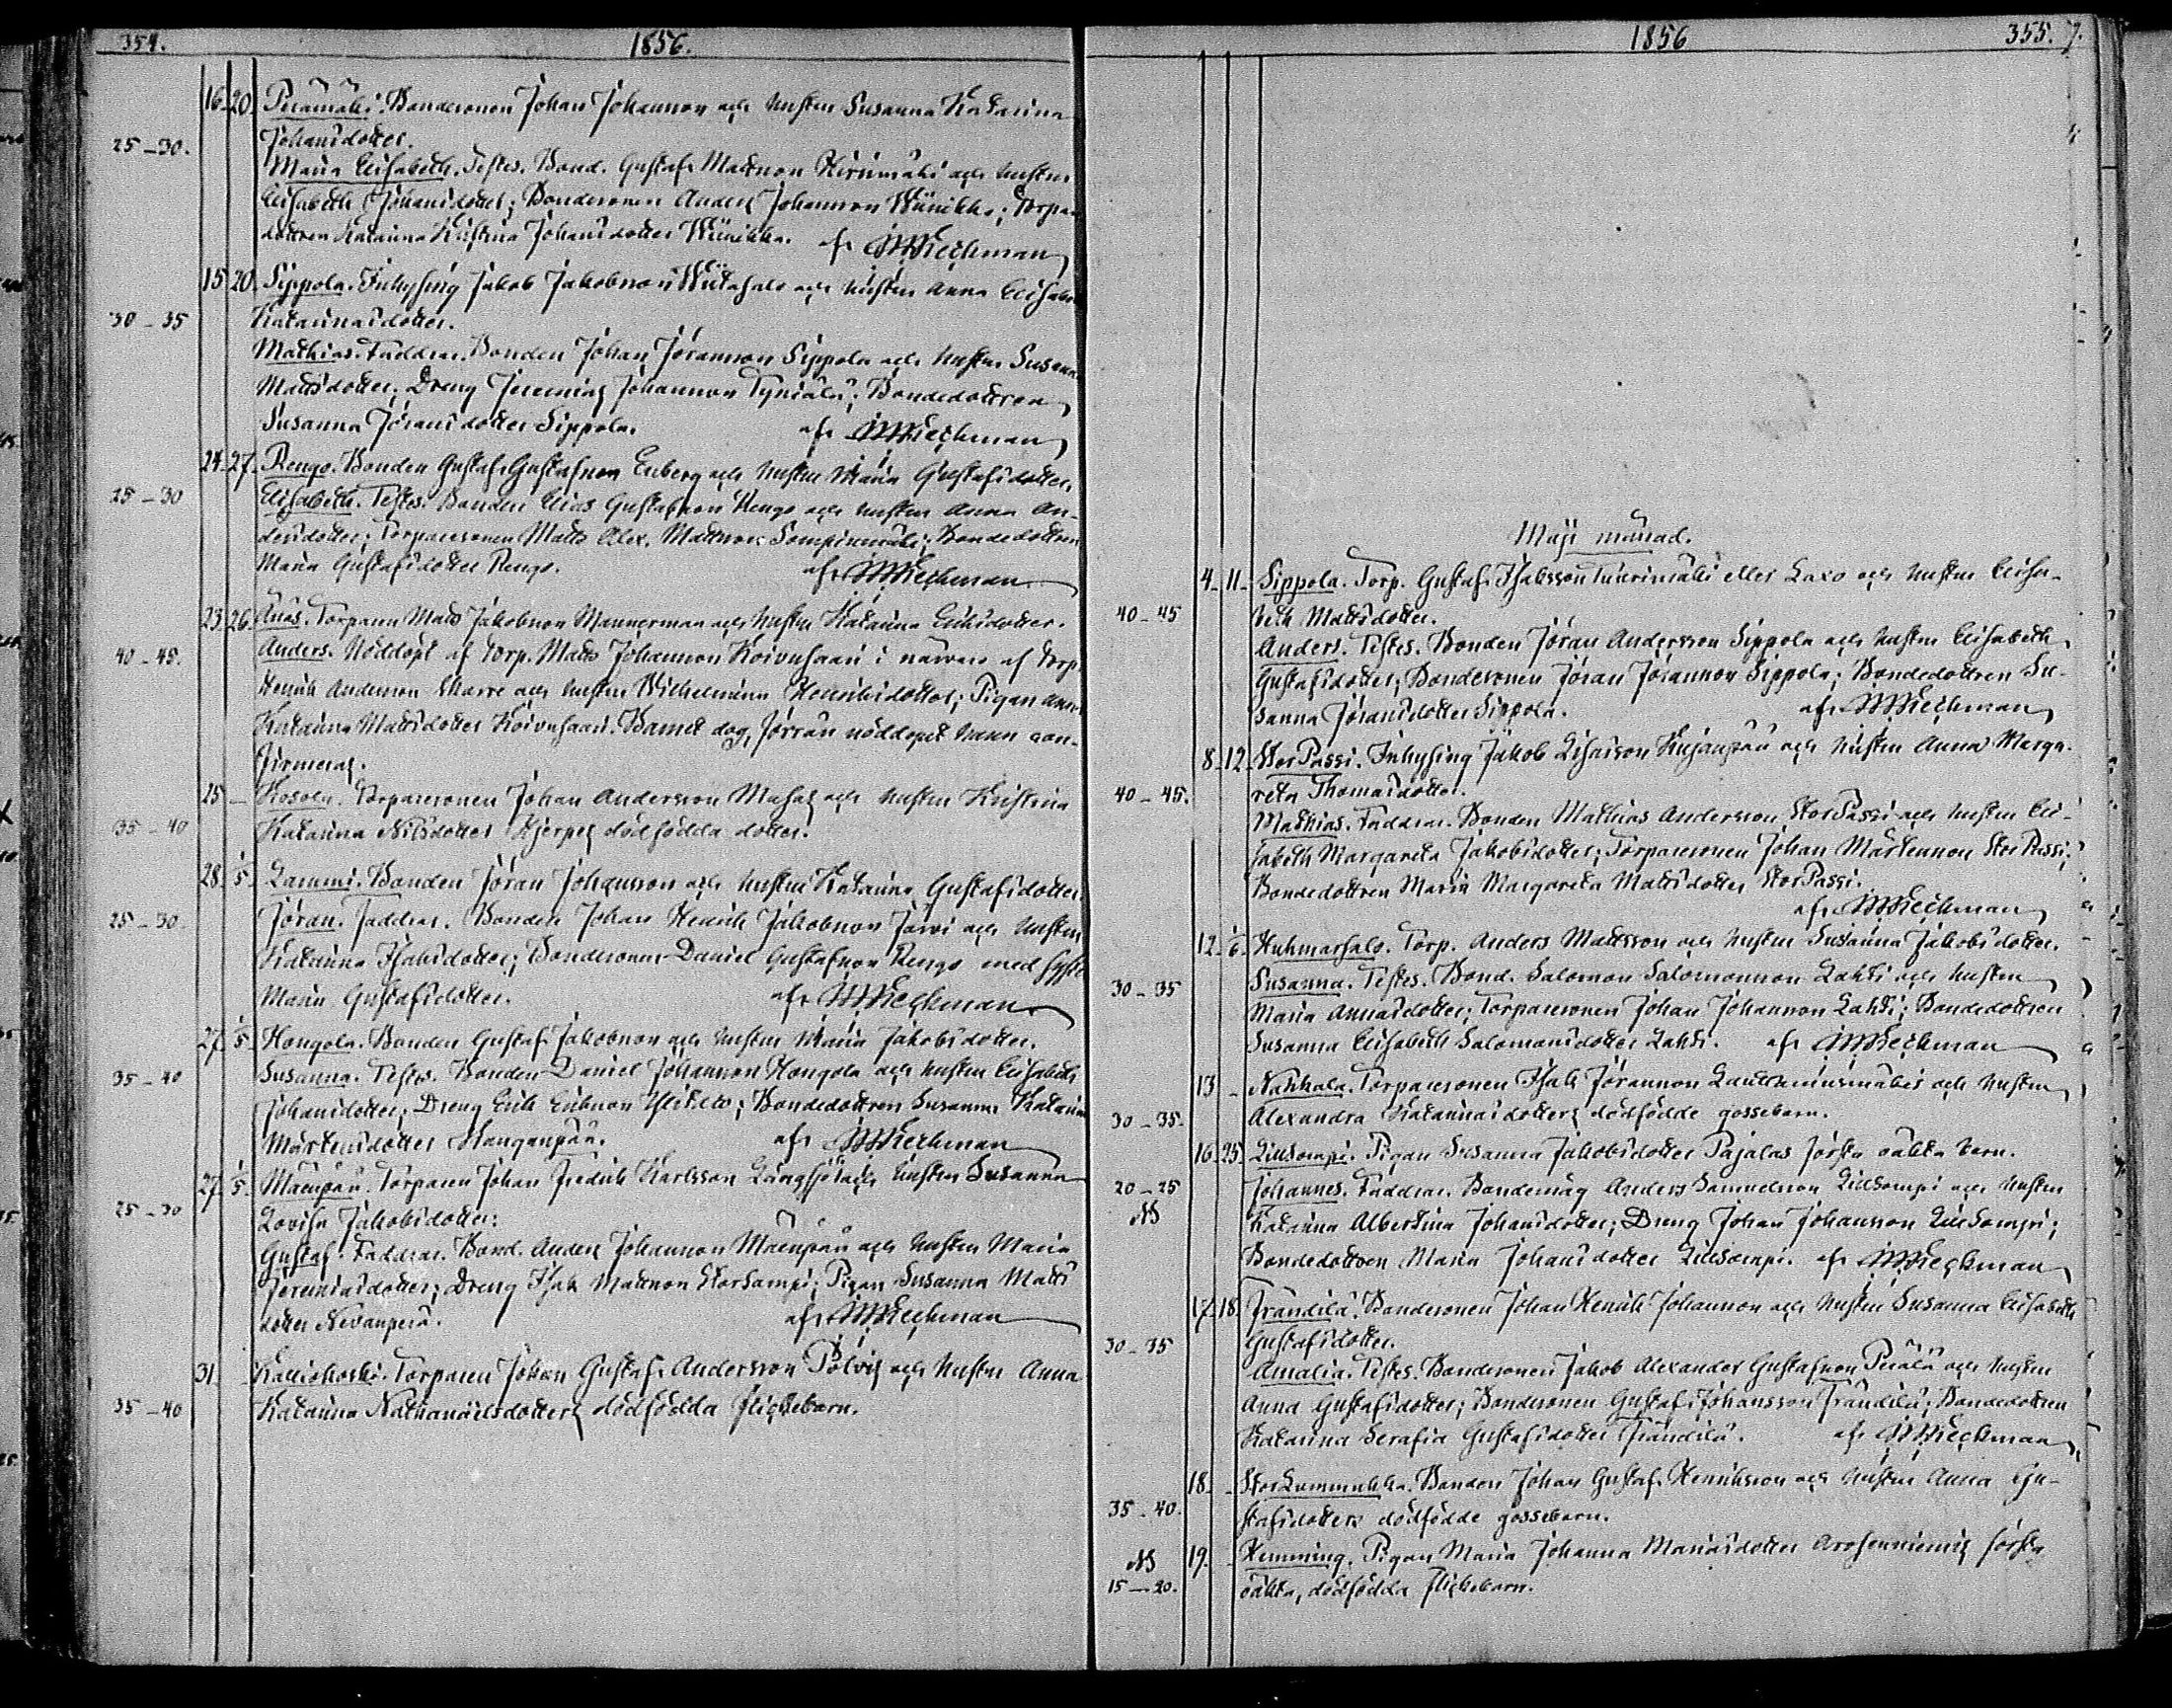 354.
1856.
16. 20. Perämäki. Bondesonen Johan Johansson och hustru Susanna Katarina
25-30. Johansdotter.
Maria Elisabeth. Testes. Bond. Gustaf Mattsson och hustru
Elisabeth Johansdotter; Bondesonen Anders Johansson Wiinikka; Torpare
dottren Katarina Kristina Johansdotter Wiinikka. af
15 20. Sippola. Inhysing Jakob Jakobsson Wiitasalo och hustru Anna Elisabet
30-35 Katarinasdotter.
Mathias. Faddrar. Bonden Johan Jöransson Sippola och hustru Susanna
Mattsdotter; Dreng Jeremias Johansson Tyniälä; Bondedottren
Susanna Jöransdotter Sippola. af
24. 27. Rengo. Bonden Gustaf Gustafsson Enberg och hustru Maria Gustafsdotter.
25-30 Elisabeth. Testes. Bonden Elias Gustafsson Rengo och hustru Anna An-
dersdotter; Torparesonen Matts Alex. Mattsson Sompinmäki; Bondedottren
Maria Gustafsdotter Rengo. af
23 26. Ånäs. Torparen Matts Jakobsson Mannerman och hustru Katarina Eriksdotter.
40-45. Anders. Nöddöpt af Torp. Matts Johansson Koivusaari i närvaro af Torp.
Henrik Andersson Skarre och hustru Wilhelmina Henriksdotter; Pigan Anna
Katarina Mattsdotter Koivusaari. Barnet dog, förrän nöddopet hann con-
firmeras.
25 - Kosola. Torparesonen Johan Andersson och hustru Kristina
35-40 Katarina Nilsdotter dödfödda dotter.
28. 1/5. Lammi. Bonden Jöran Johansson och hustru Katarina Gustafsdotter.
25-30. Jöran. Faddrar. Bonden Johan Henrik Jakobsson Järvi och hustru
Katarina Isaksdotter; Bondesonen Daniel Gustafsson Rengo med syster
Maria Gustafsdotter. af
27. 1/5. Hongola. Bonden Gustaf Jakobsson och hustru Maria Jakobsdotter.
35-40 Susanna. Testes. Bonden Daniel Johansson Hongola och hustru Elisabeth
Johansdotter; Dreng Erik Eriksson; Bondedottren Susanna Katarina
Mårtensdotter Kanganpää. af
27. 1/5. Mäenpää. Torparen Johan Fredrik Karlsson Långsjö och hustru Susanna
25-30 Lovisa Jakobsdotter.
Gustaf. Faddrar. Bond. Anders Johansson Mäenpää och hustru Maria
Jeremiasdotter; Dreng Isak Mattsson Storsompi; Pigan Susanna Matts
dotter Nevanperä. af
31. Kalliokoski. Torparen Johan Gustaf Andersson och hustru Anna
35-40 Katarina Nathanaelsdotters dödfödda flickebarn.
1856
355. 7.
Maji månad.
4. 11. Sippola. Torp. Gustaf Isaksson Tuurimäki eller Saxo och hustru Elisa-
40-45 beth Mattsdotter.
Anders. Testes. Bonden Jöran Andersson Sippola och hustru Elisabeth
Gustafsdotter; Bondesonen Jöran Jöransson Sippola; Bondedottren Su-
sanna Jöransdotter Sippola. af
8. 12. StorPassi. Inhysing Jakob Kujanpää och hustru Anna Marga-
40-45. reta Thomasdotter.
Mathias. Faddrar. Bonden Mathias Andersson StorPassi och hustru Eli-
sabeth Margareta Jakobsdotter; Torparesonen Johan Mårtensson StorPassi;
Bondedottren Maria Margareta Mattsdotter StorPassi.
af
12. 1/6. Huhmarsalo. Torp. Anders Mattsson och hustru Susanna Jakobsdotter.
30-35 Susanna. Testes. Bond. Salomon Salomonsson Lahti och hustru
Maria Annasdotter; Torparesonen Johan Johansson Lahti; Bondedottren
Susanna Elisabeth Salomonsdotter Lahti. af
13 - Nahkala. Torparesonen Isak Jöransson och hustru
30-35. Alexandra Katarinasdotters dödfödde gossebarn.
16. 25. Lillsompi. Pigan Susanna Jakobsdotter Pajalas första oäkta barn.
20-25 Johannes. Faddrar. Bondemåg Anders Samuelsson Lillsompi och hustru
NB Katarina Albertina Johansdotter; Dreng Johan Johansson Lillsompi;
Bondedottren Maria Johansdotter Lillsompi. af
17. 18. Frändilä. Bondesonen Johan Henrik Johansson och hustru Susanna Elisabeth
30-35 Gustafsdotter.
Amalia. Testes. Bondesonen Jakob Alexander Gustafsson Perälä och hustru
Anna Gustafsdotter; Bondesonen Gustaf Johansson Frändilä; Bondedottren
Katarina Serafia Gustafsdotter Frändilä. af
18. - StorLummukka. Bonden Johan Gustaf Henriksson och hustru Anna Gu-
35-40. stafsdotters dödfödde gossebarn.
NB 19. - Hemming. Pigan Maria Johanna Mariasdotter första
15-20. oäkta, dödfödda flickebarn.